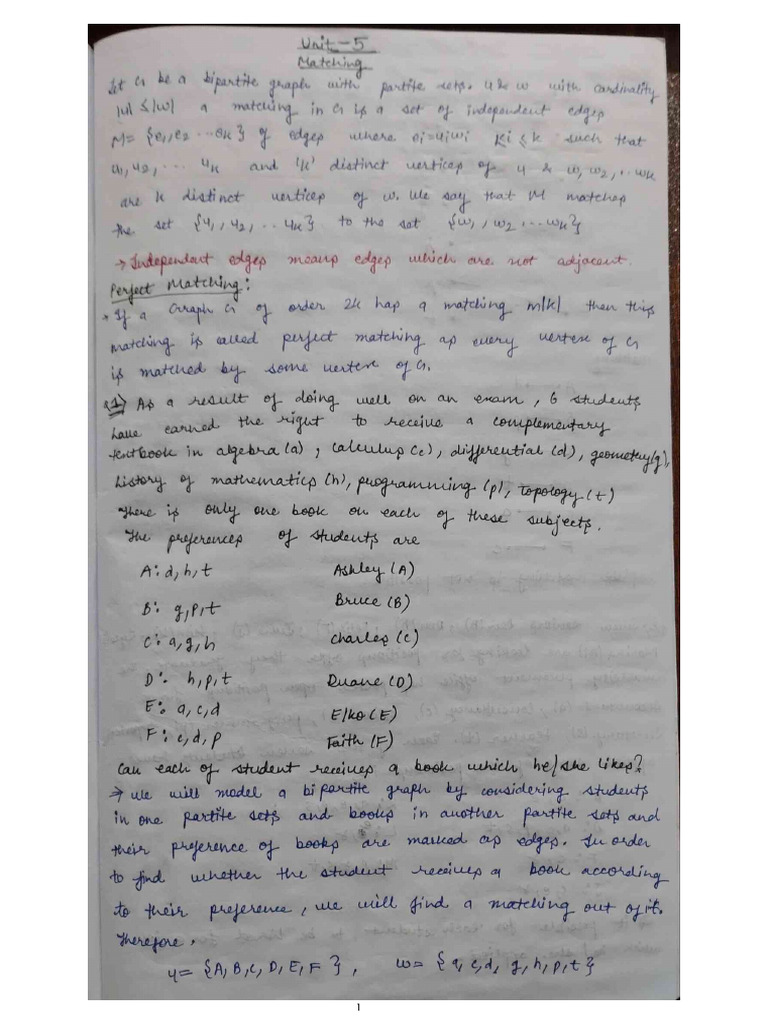 Unit-5
Matching
Let G be a bipartite graph with partite sets. u & w with cardinality
|u| ≤ |w| a matching in G is a set of independent edges
M= {e1, e2 ... ek} of edges where ei = uiwi 1≤i≤k such that
u1, u2, ... uk and 'k' distinct vertices of u & w1, w2, ... wk
are k distinct vertices of w. We say that M matches
the set {u1, u2, ... uk} to the set {w1, w2 ... wk}
→ Independent edges means edges which are not adjacent.
Perfect Matching:
* If a Graph G of order 2k has a matching m|k| then this
matching is called perfect matching as every vertex of G
is matched by some vertex of G.
Q1) As a result of doing well on an exam, 6 students
have earned the right to receive a complementary
textbook in algebra (a), Calculus (c), differential (d), geometry (g),
history of mathematics (h), programming (p), topology (t)
There is only one book on each of these subjects.
The preferences of students are
A: d, h, t Ashley (A)
B: g, p, t Bruce (B)
C: a, g, h Charles (C)
D: h, p, t Duane (D)
E: a, c, d Elko (E)
F: c, d, p Faith (F)
Can each of student receives a book which he/she likes?
→ We will model a bipartite graph by considering students
in one partite sets and books in another partite sets and
their preference of books are marked as edges. In order
to find whether the student receives a book according
to their preference, we will find a matching out of it.
Therefore,
u= {A, B, C, D, E, F}, w= {a, c, d, g, h, p, t}
1